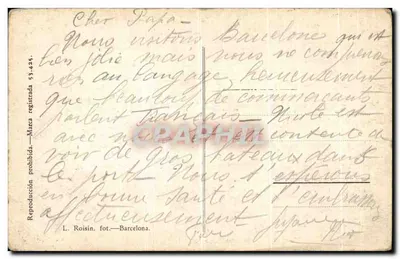 Cher Papa
Nous visitons Barcelone qui est
bien jolie mais nous ne comprenons
rien au langage, heureusement
que beaucoup de commerçants
parlent français. est
avec contente de
voir de gros bateaux dans
le port. Nous t'espérons
en bonne santé et t'embrassons
affectueusement
Reproducción prohibida.—Marca registrada
L. Roisin, fot.—Barcelona.